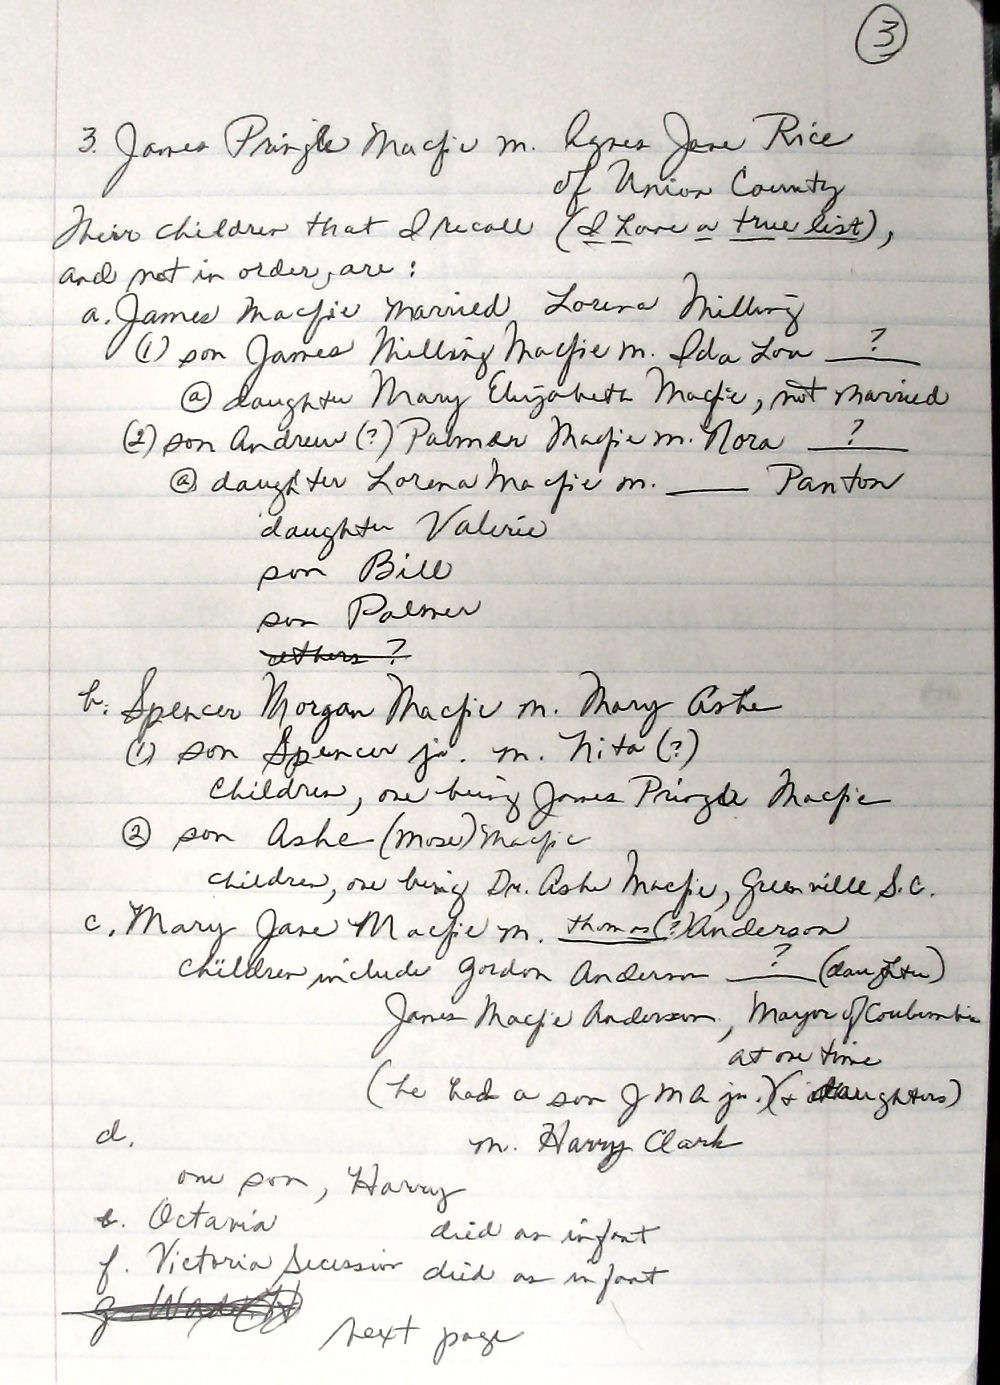 3
3. James Pringle Macfie m. Agnes Jane Rice
of Union County
Their children that I recall (I have a true list),
and not in order, are :
a. James Macfie married Lorena Milling
(1) son James Milling Macfie m. Ida Lou ?
(a) daughter Mary Elizabeth Macfie, not married
(2) son Andrew (?) Palmer Macfie m. Nora ?
(a) daughter Lorena Macfie m. ____ Panton
daughter Valerie
son Bill
son Palmer
others ?
b. Spencer Morgan Macfie m. Mary Ashe
(1) son Spencer jr. m. Nita (?)
children, one being James Pringle Macfie
(2) son Ashe (Mose) Macfie
children, one being Dr. Ashe Macfie, Greenville S.C.
c. Mary Jane Macfie m. Thomas (?) Anderson
children include Gordon Anderson ? (daughter)
James Macfie Anderson, Mayor of Coulumbia
at one time
(he had a son J M A jr.) (+ daughters)
d. m. Harry Clark
one son, Harry
e. Octavia died as infant
f. Victoria Secession died as infant
g. Wade H
next page